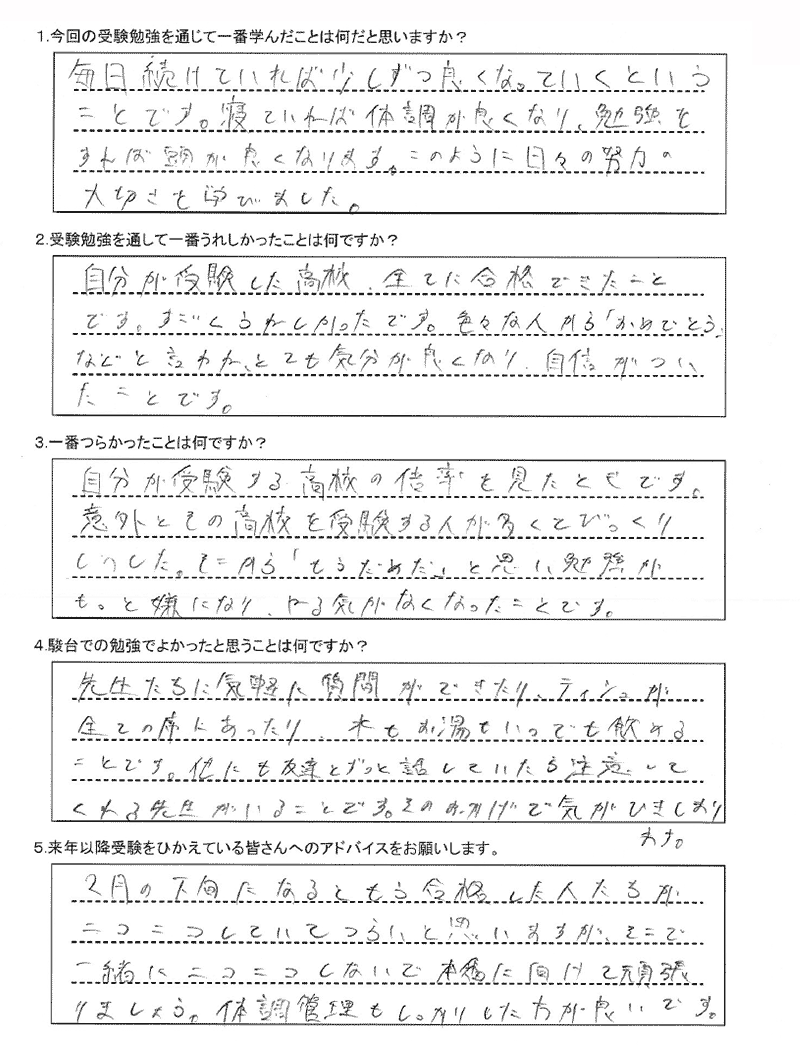 1.今回の受験勉強を通じて一番学んだことは何だと思いますか？
毎日続けていれば少しずつ良くなっていくという
ことです。寝ていれば体調が良くなり、勉強を
すれば頭が良くなります。このように日々の努力の
大切さを学びました。
2.受験勉強を通して一番うれしかったことは何ですか？
自分が受験した高校、全てに合格できたこと
です。すごくうれしかったです。色々な人から「おめでとう」
などと言われ、とても気分が良くなり、自信がつい
たことです。
3.一番つらかったことは何ですか？
自分が受験する高校の倍率を見たときです。
意外とその高校を受験する人が多くてびっくり
しました。そこから「もうだめだ」と思い勉強が
もっと嫌になり、やる気がなくなったことです。
4.駿台での勉強でよかったと思うことは何ですか？
先生たちに気軽に質問ができたり、ティシュが
全ての席にあったり、水もお湯もいつでも飲める
ことです。他にも友達とずっと話していたら注意して
くれる先生がいることです。そのおかげで気がひきしまり
ます。
5.来年以降受験をひかえている皆さんへのアドバイスをお願いします。
2月の下旬になるともう合格した人たちが
ニコニコしていてつらいと思いますが、そこで
一緒にニコニコしないで本番に向けて頑張
りましょう。体調管理もしっかりした方が良いです。